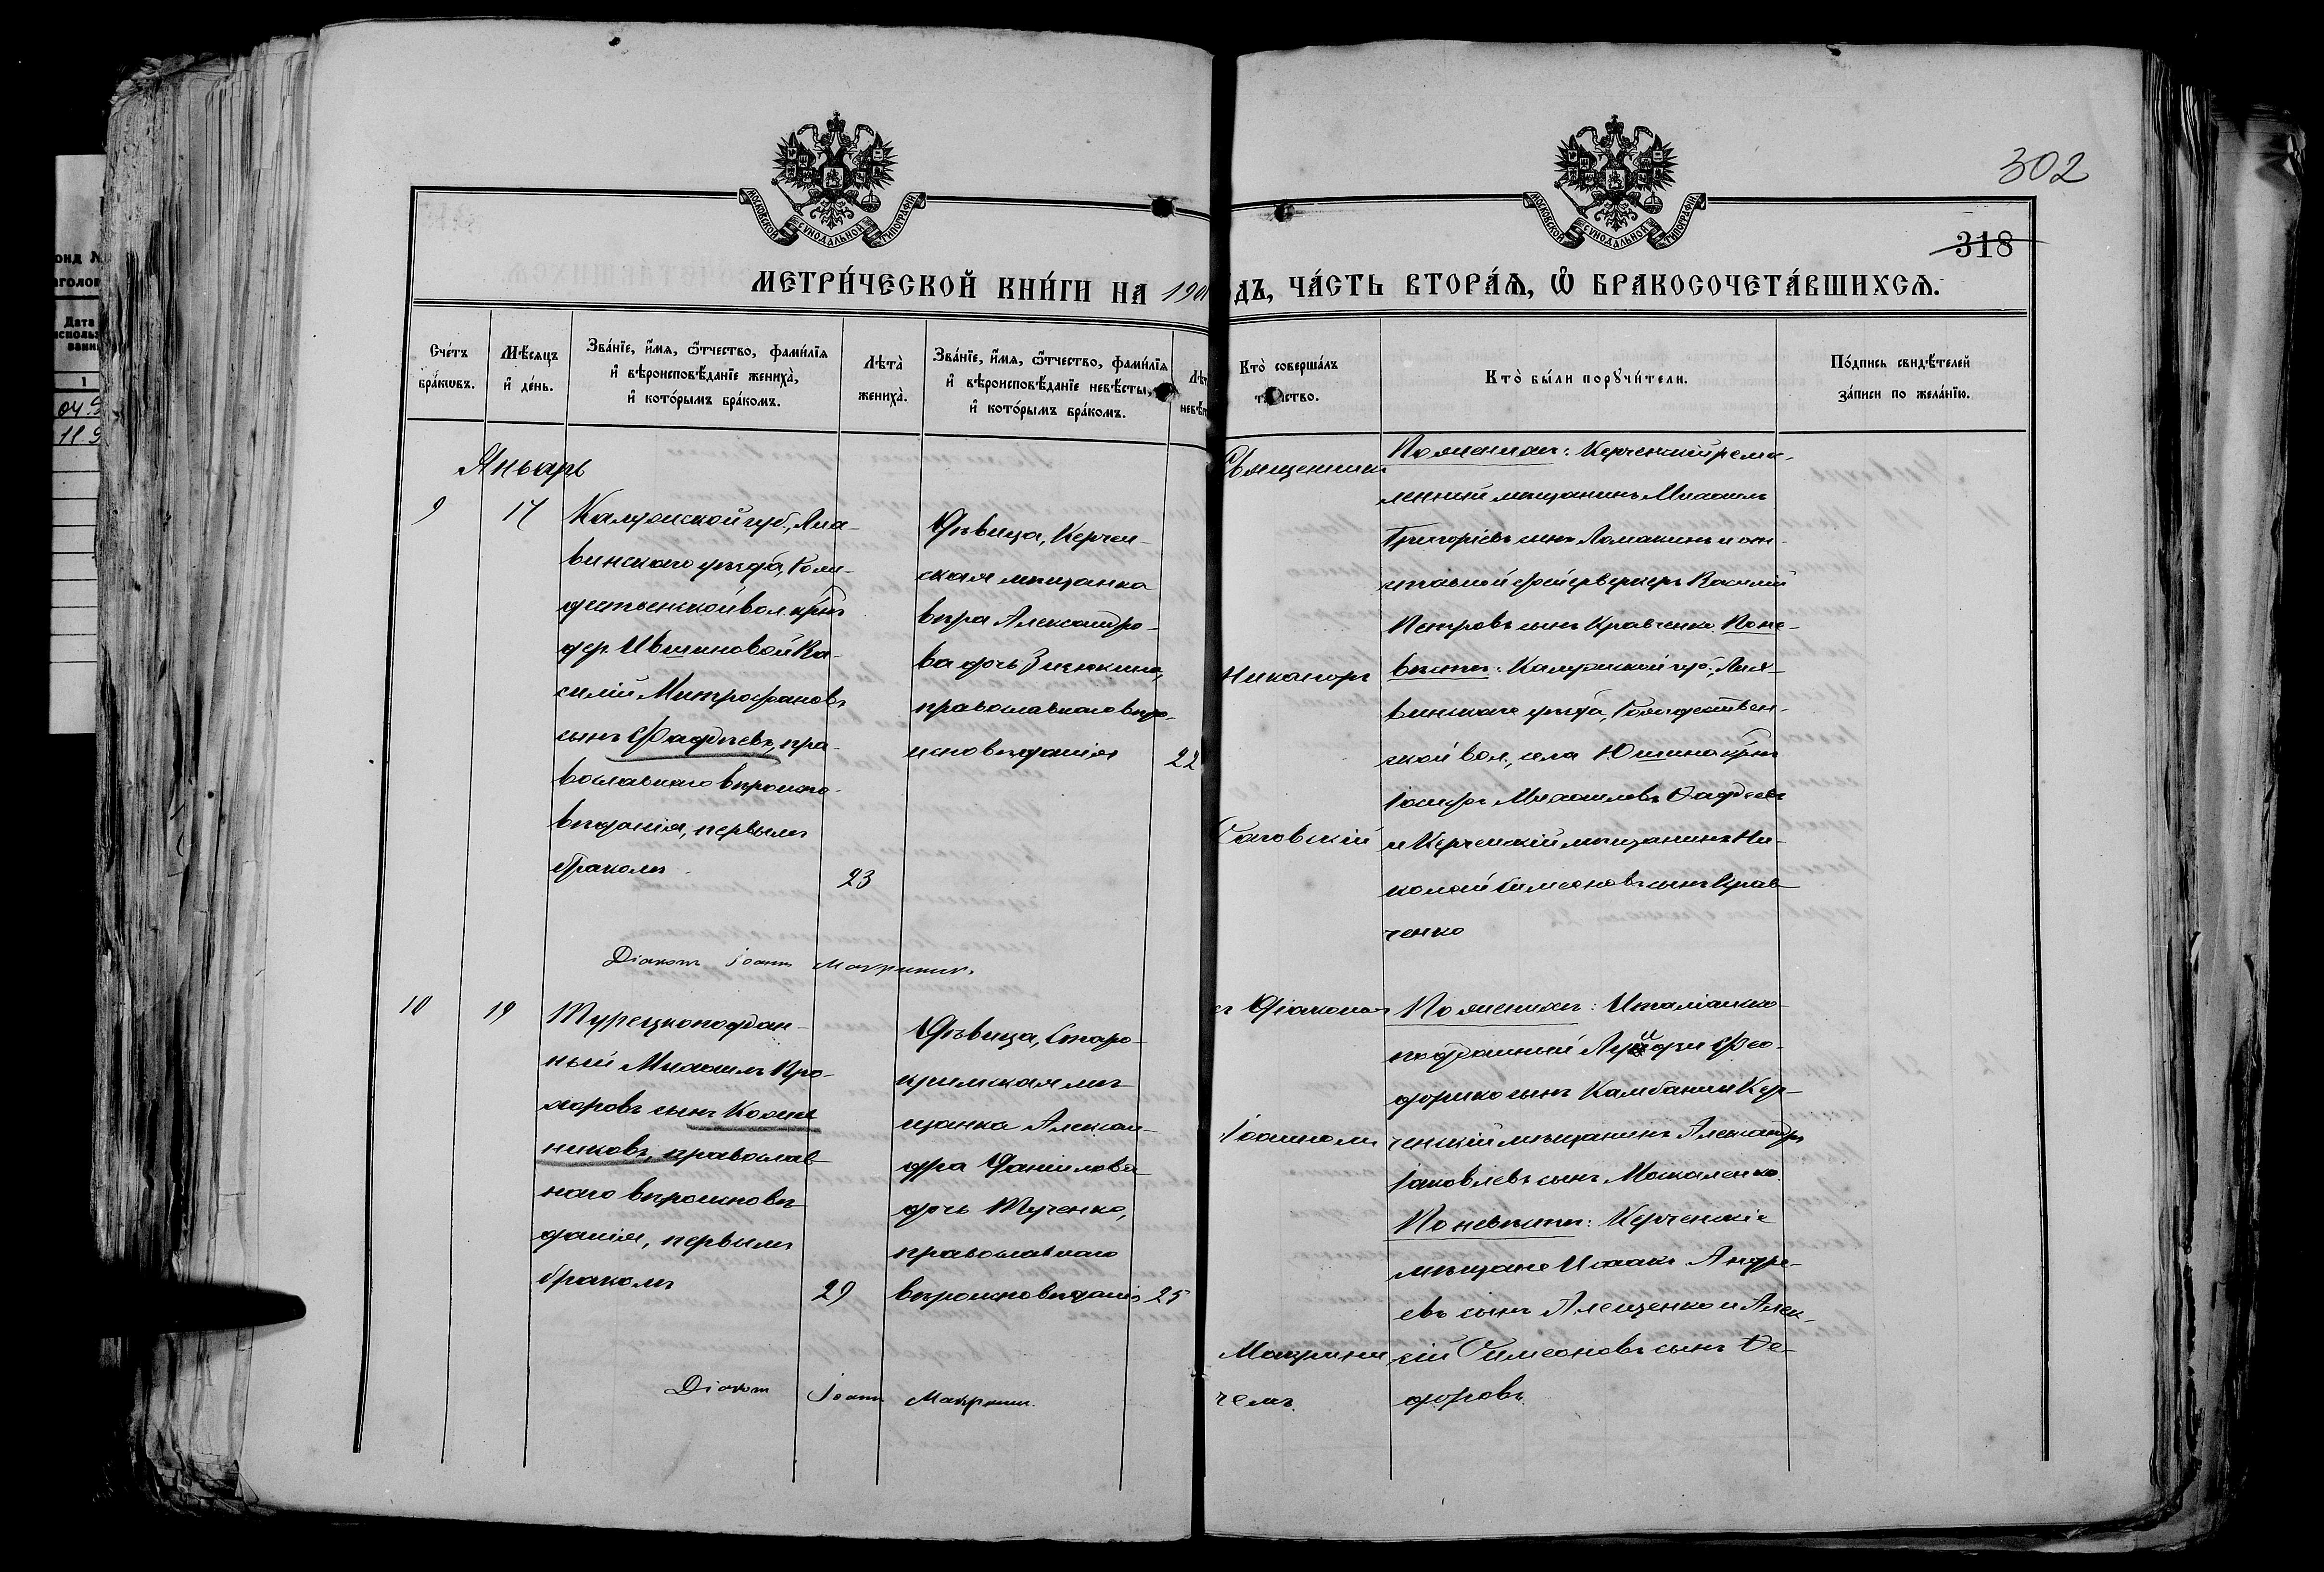 302
318
МОСКОВСКОЙ СѴНОДАЛЬНОЙ ТИПОГРАФІИ
МОСКОВСКОЙ СѴНОДАЛЬНОЙ ТИПОГРАФІИ
МЕТРИ́ЧЕСКОЙ КНИ́ГИ НА 190
ДЪ, ЧА́СТЬ ВТОРА́Я, Ѽ БРАКОСОЧЕТА́ВШИХСЯ.
Сче́тъ
бра́кωвъ.
Мѣ́сяцъ
и҆ де́нь.
Зва́нїе, и҆́мя, ѻ҆́тчество, фами́лїя
и҆ вѣроисповѣ́данїе жениха̀,
и҆ кото́рымъ бра́комъ.
Лѣта̀
жениха̀.
Зва́нїе, и҆́мя, ѻ҆́тчество, фами́лїя
и҆ вѣроисповѣ́данїе невѣ́сты,
и҆ кото́рымъ бра́комъ.
Кто̀ соверша́лъ
Кто̀ бы́ли порꙋчи́тели.
По́дпись свидѣ́телей
за́писи по жела́нїю.
Январь
9
17
Калужской губ.,
винскаго уѣзда, Рож-
дественской вол. кр-нъ
дер. Ившиновой Ва-
силій Митрофановъ
сынъ Фадѣевъ, пра-
вославнаго вѣроиспо-
вѣданія, первымъ
бракомъ
23
Дѣвица, Керчен-
ская мѣщанка
Вѣра Александро-
ва дочь
православнаго вѣро-
исповѣданія
22
Священникъ
Никаноръ
По женихѣ: Керченскій реме-
сленный мѣщанинъ Михаилъ
Григоріевъ сынъ Ломакинъ и от-
ставной фейерверкеръ Василій
Петровъ сынъ Кравченко. По не-
вѣстѣ: Калужской губ.,
винскаго уѣзда, Рождествен-
ской вол., села Юшина кр-нъ
Іосифъ Михаиловъ Фадѣевъ
и Керченскій мѣщанинъ Ни-
колай Симеоновъ сынъ Крав-
ченко
Діаконъ Іоаннъ
10
19
Турецкоподдан-
ный Михаилъ Про-
хоровъ сынъ
никовъ, православ-
наго вѣроисповѣ-
данія, первымъ
бракомъ
29
Дѣвица, Старо-
крымская мѣ-
щанка Алексан-
дра Даніилова
дочь Тученко,
православнаго
вѣроисповѣданія
25
съ Діакономъ
Іоанномъ
Макрини
чемъ.
По женихѣ: Италіанско-
подданный Луиджи Фео-
дорико сынъ Камбани и Кер-
ченскій мѣщанинъ Александръ
Іаковлевъ сынъ Москаленко.
По невѣстѣ: Керченскіе
мѣщане Исаакъ Андре-
евъ сынъ Алещенко и Алек-
сій Симеоновъ сынъ Ѳе-
доровъ.
Діаконъ Іоаннъ